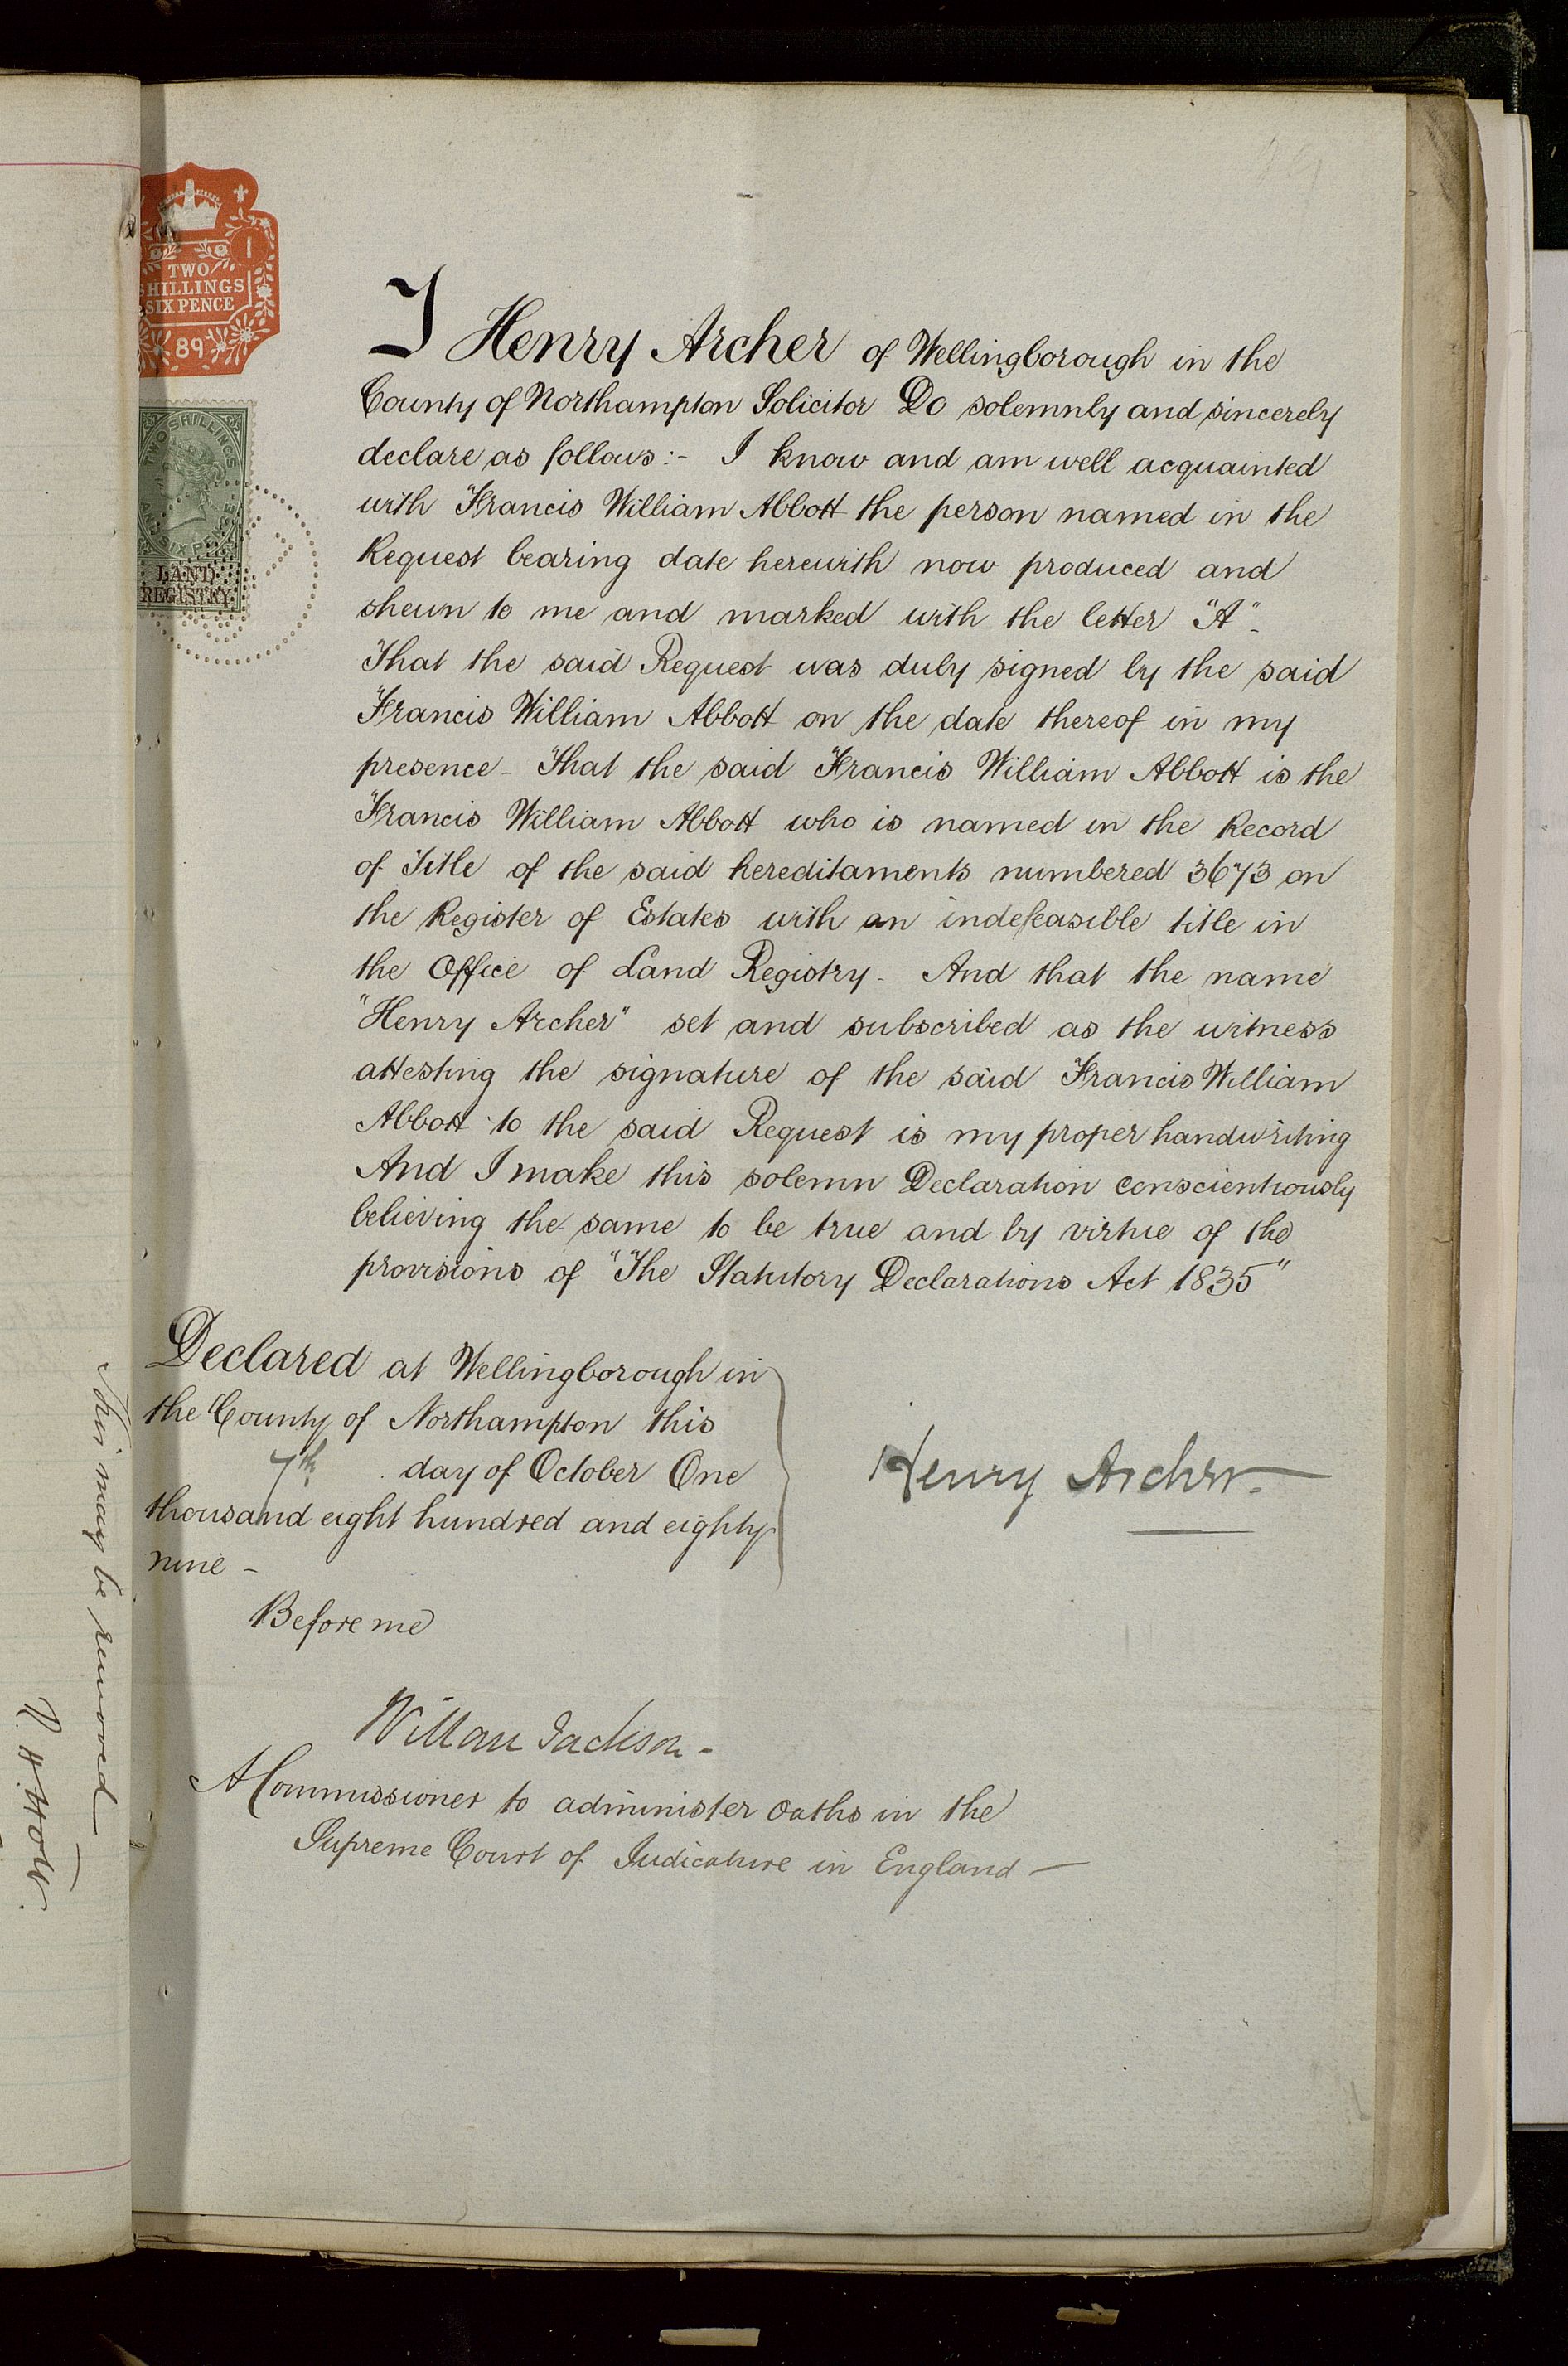 TWO
SHILLINGS
SIX PENCE
89
TWO SHILLINGS
AND SIX PENCE
LAND
REGISTRY
I Henry Archer of Wellingborough in the
County of Northampton Solicitor Do solemnly and sincerely
declare as follows:- I know and am well acquainted
with Francis William Abbott the person named in the
Request bearing date herewith now produced and
shewn to me and marked with the letter "A" -
That the said Request was duly signed by the said
Francis William Abbott on the date thereof in my
presence - That the said Francis William Abbott is the
Francis William Abbott who is named in the Record
of Title of the said hereditaments numbered 3673 on
the Register of Estates with an indefeasible title in
the Office of Land Registry - And that the name
"Henry Archer" set and subscribed as the witness
attesting the signature of the said Francis William
Abbott to the said Request is my proper handwriting
And I make this solemn Declaration conscientiously
believing the same to be true and by virtue of the
provisions of "The Statutory Declarations Act 1835"
Declared at Wellingborough in
the County of Northampton this
7th day of October One
thousand eight hundred and eighty
nine -
Henry Archer.
Before me
Willan Jackson -
A Commissioner to administer oaths in the
Supreme Court of Judicature in England -
This may be removed